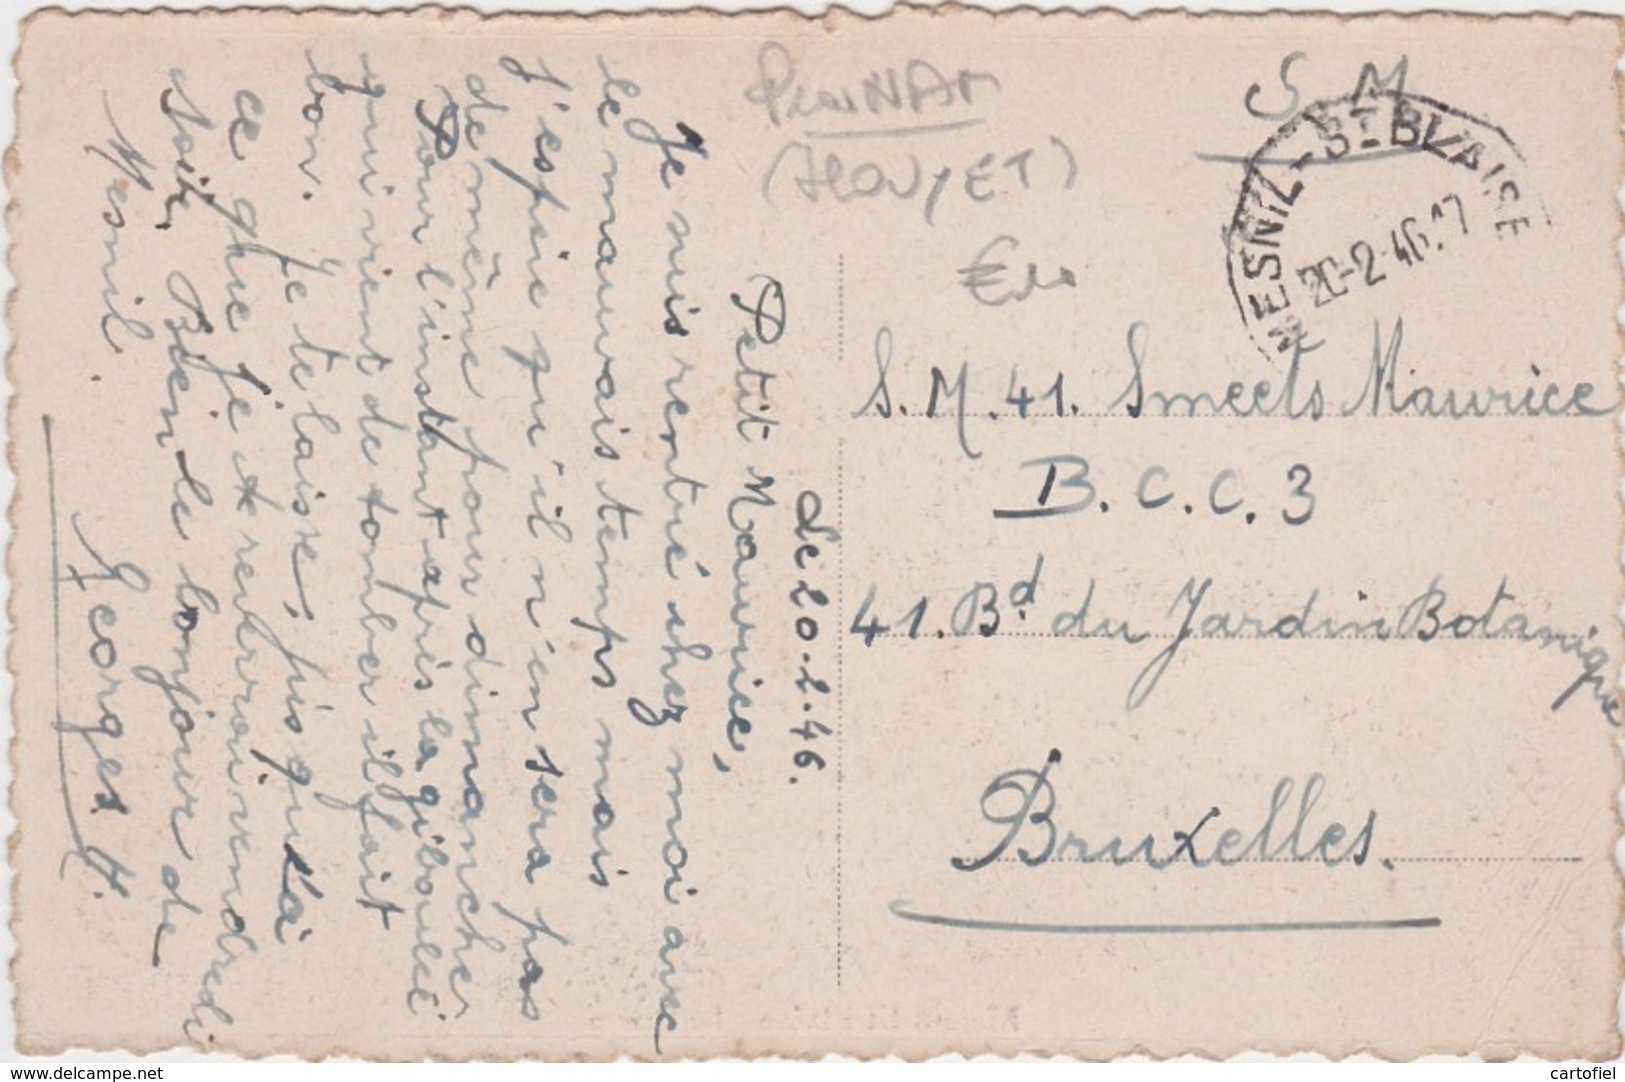 Le 20.2.46.
Petit Maurice,
Je suis rentré chez moi avec
le mauvais temps mais
j'espère qu'il n'en sera pas
de même pour dimanche
Pour l'instant après la giboulée
qui vient de tomber il fait
bon. Je te laisse, jusqu'à
ce que je te reverrai vendredi
soir. Bien le bonjour de
Mesnil.
Georges H.
(HOUYET)
S. M.
MESNIL-ST BLAISE
20-2-46.17
S. M. 41. Smeets Maurice
B. C. C. 3
41. Bd du Jardin Botanique
Bruxelles.
www.delcampe.net
cartofiel